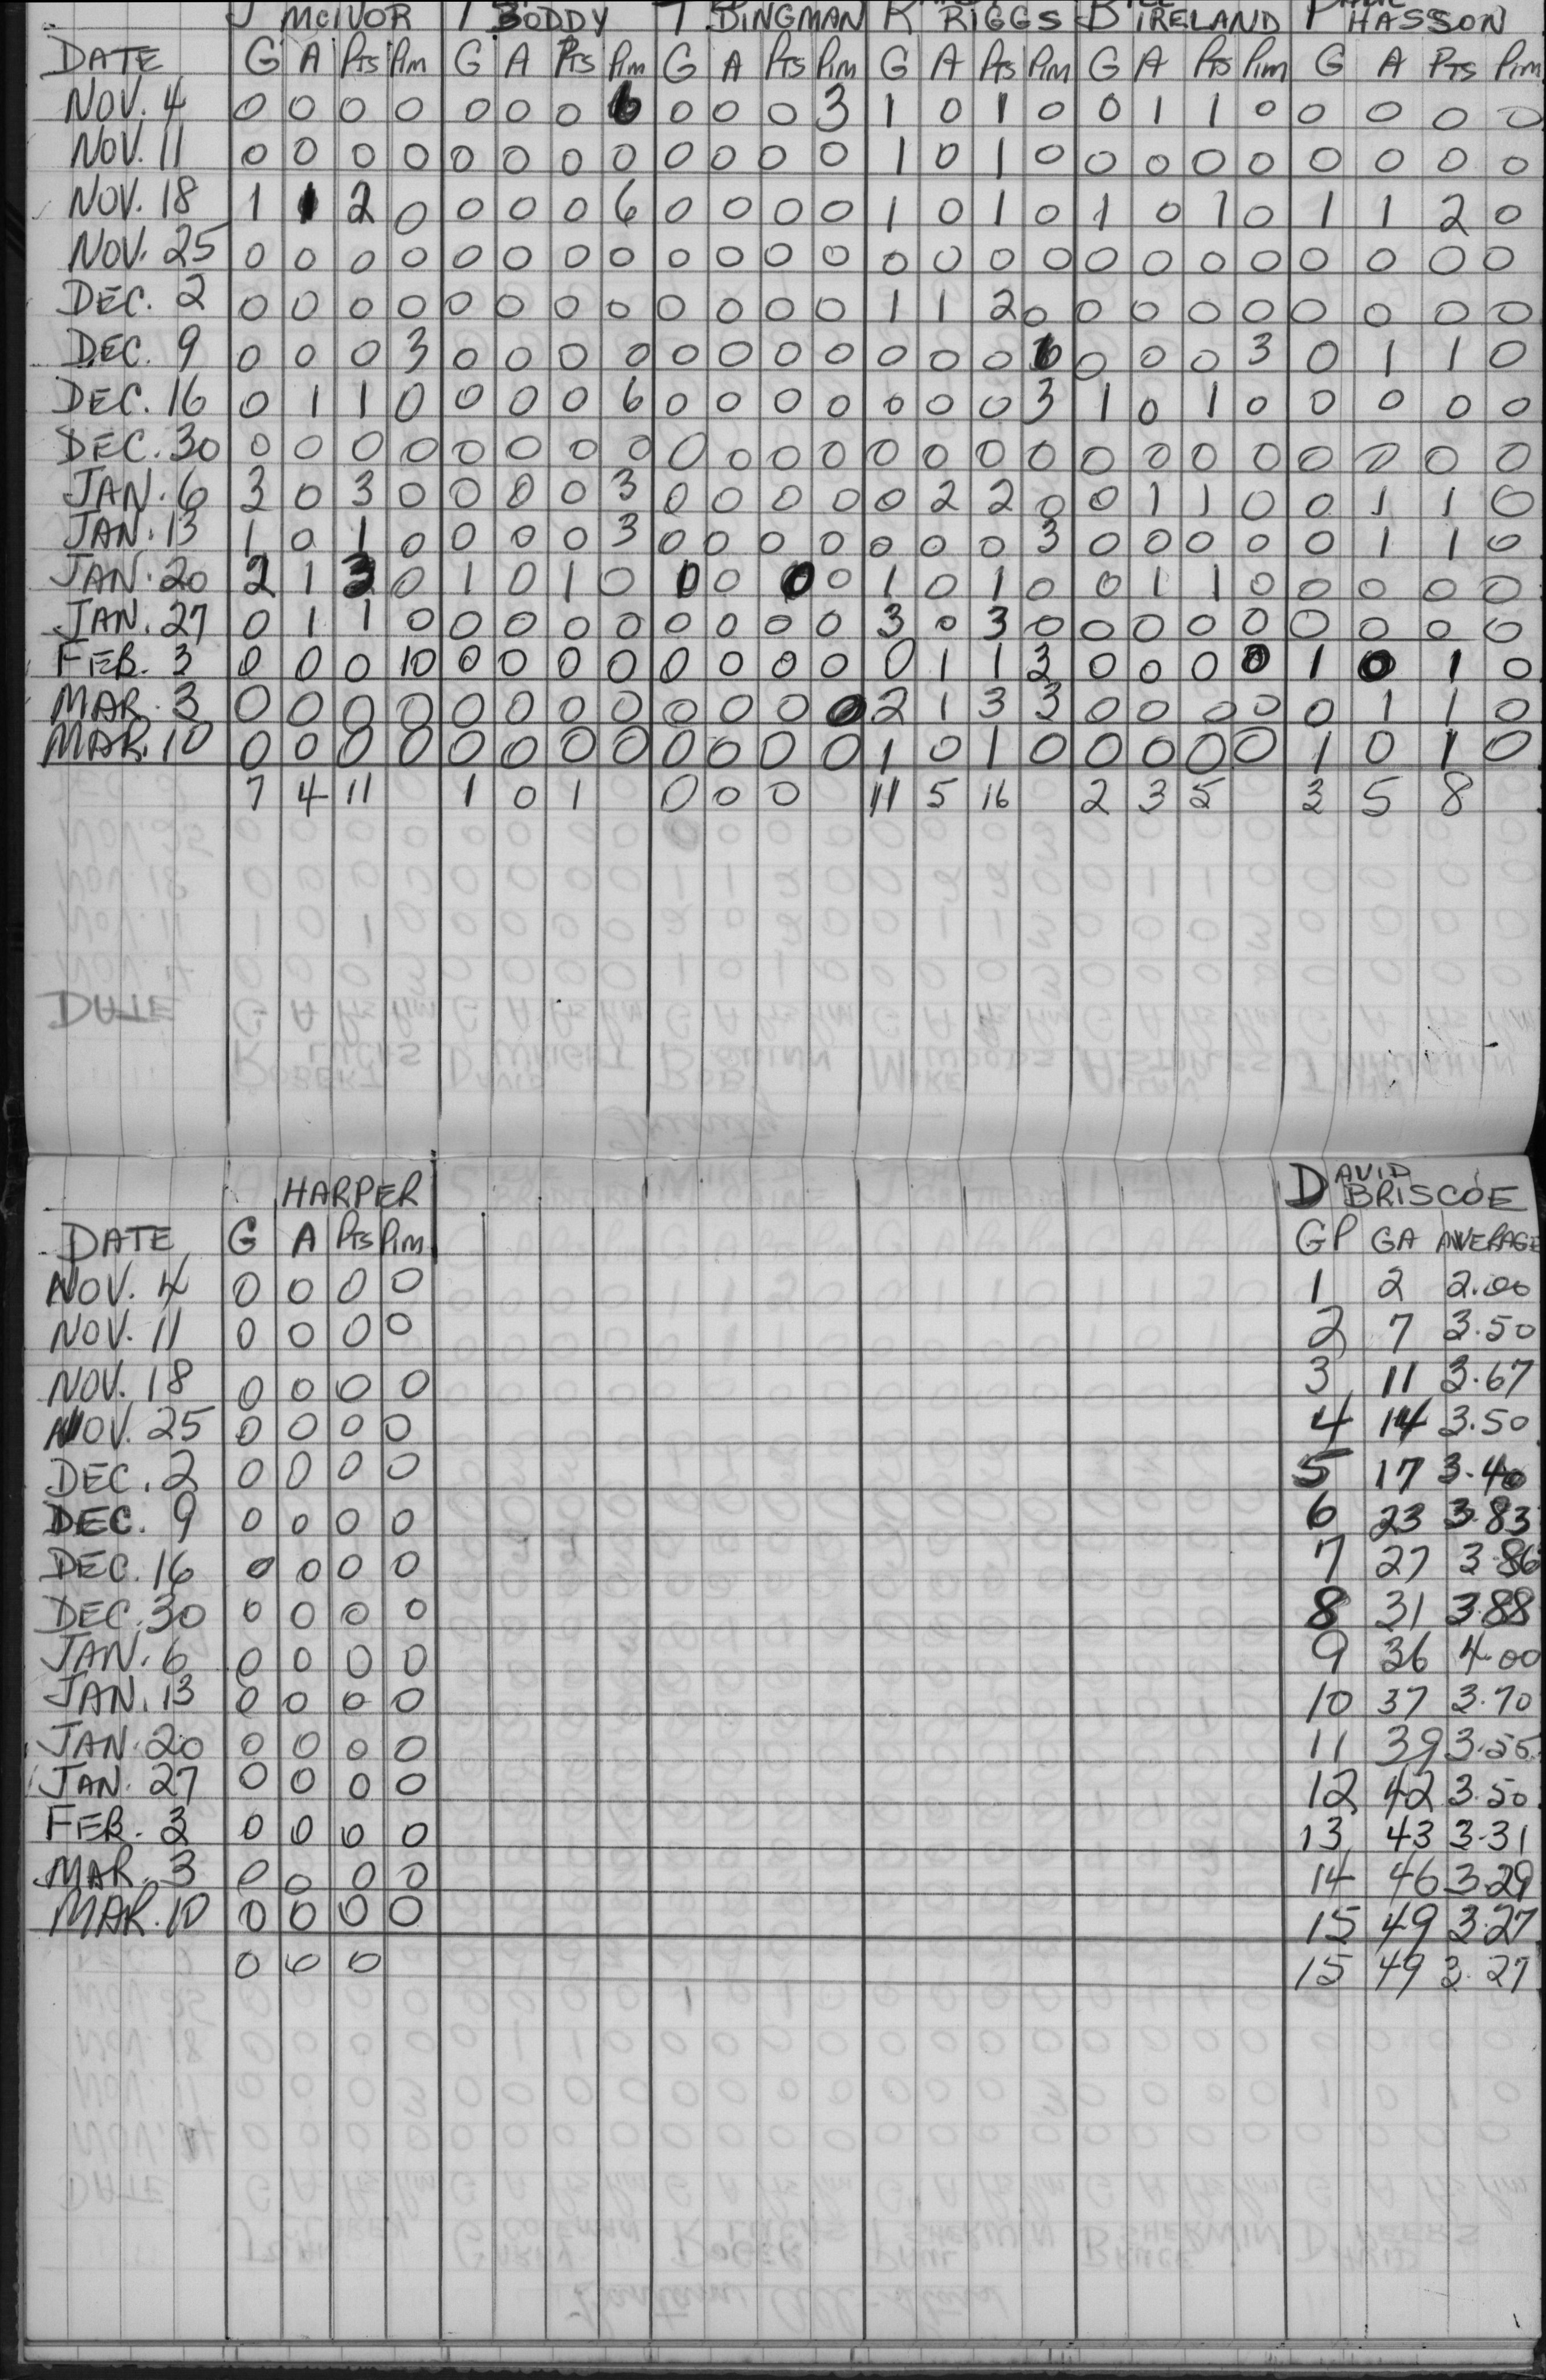 J McIVOR T BODDY T BINGMAN K RIGGS B IRELAND P HASSON
DATE G A Pts Pim G A Pts Pim G A Pts Pim G A Pts Pim G A Pts Pim G A PTS Pim
NOV. 4 0 0 0 0 0 0 0 6 0 0 0 3 1 0 1 0 0 1 1 0 0 0 0 0
NOV. 11 0 0 0 0 0 0 0 0 0 0 0 0 1 0 1 0 0 0 0 0 0 0 0 0
NOV. 18 1 1 2 0 0 0 0 6 0 0 0 0 1 0 1 0 1 0 1 0 1 1 2 0
NOV. 25 0 0 0 0 0 0 0 0 0 0 0 0 0 0 0 0 0 0 0 0 0 0 0 0
DEC. 2 0 0 0 0 0 0 0 0 0 0 0 0 1 1 2 0 0 0 0 0 0 0 0 0
DEC. 9 0 0 0 3 0 0 0 0 0 0 0 0 0 0 0 6 0 0 0 3 0 1 1 0
DEC. 16 0 1 1 0 0 0 0 6 0 0 0 0 0 0 0 3 1 0 1 0 0 0 0 0
DEC. 30 0 0 0 0 0 0 0 0 0 0 0 0 0 0 0 0 0 0 0 0 0 0 0 0
JAN. 6 3 0 3 0 0 0 0 3 0 0 0 0 0 2 2 0 0 1 1 0 0 1 1 0
JAN. 13 1 0 1 0 0 0 0 3 0 0 0 0 0 0 0 3 0 0 0 0 0 1 1 0
JAN. 20 2 1 3 0 1 0 1 0 0 0 0 0 1 0 1 0 0 1 1 0 0 0 0 0
JAN. 27 0 1 1 0 0 0 0 0 0 0 0 0 3 0 3 0 0 0 0 0 0 0 0 0
FEB. 3 0 0 0 10 0 0 0 0 0 0 0 0 0 1 1 3 0 0 0 0 1 0 1 0
MAR. 3 0 0 0 0 0 0 0 0 0 0 0 0 2 1 3 3 0 0 0 0 0 1 1 0
MAR. 10 0 0 0 0 0 0 0 0 0 0 0 0 1 0 1 0 0 0 0 0 1 0 1 0
7 4 11 1 0 1 0 0 0 11 5 16 2 3 5 3 5 8
HARPER DAVID BRISCOE
DATE G A Pts Pim GP GA AVERAGE
NOV. 4 0 0 0 0 1 2 2.00
NOV. 11 0 0 0 0 2 7 3.50
NOV. 18 0 0 0 0 3 11 3.67
NOV. 25 0 0 0 0 4 14 3.50
DEC. 2 0 0 0 0 5 17 3.40
DEC. 9 0 0 0 0 6 23 3.83
DEC. 16 0 0 0 0 7 27 3.86
DEC. 30 0 0 0 0 8 31 3.88
JAN. 6 0 0 0 0 9 36 4.00
JAN. 13 0 0 0 0 10 37 3.70
JAN. 20 0 0 0 0 11 39 3.55
JAN. 27 0 0 0 0 12 42 3.50
FEB. 3 0 0 0 0 13 43 3.31
MAR. 3 0 0 0 0 14 46 3.29
MAR. 10 0 0 0 0 15 49 3.27
0 0 0 15 49 3.27